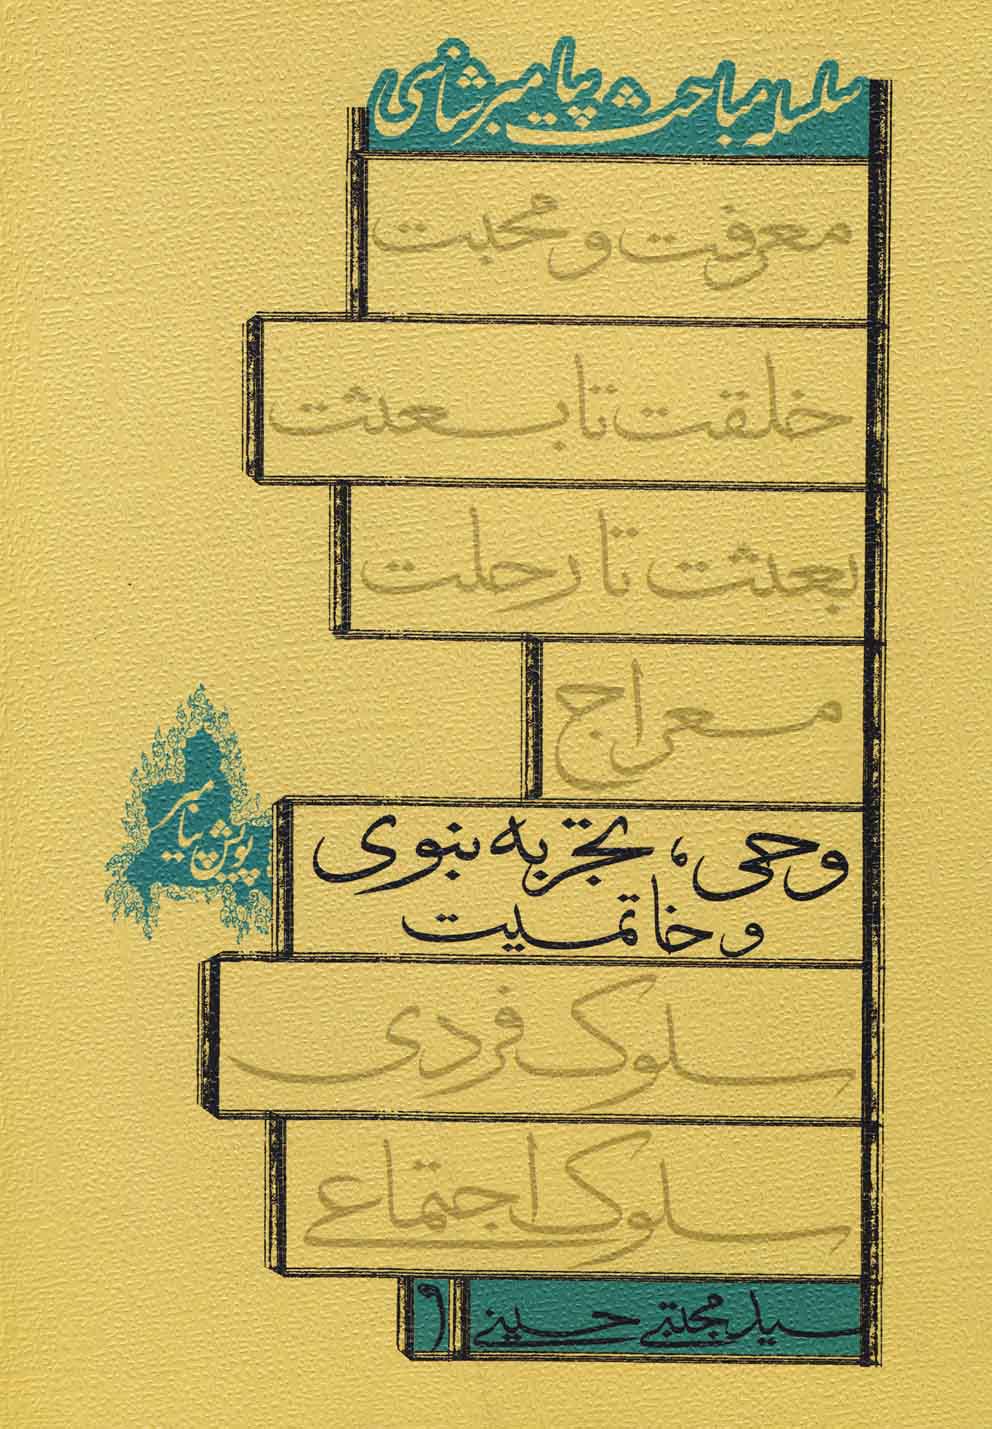 سلسله مباحث پیامبرشناسی
معرفت و محبت
خلقت تا بعثت
بعثت تا رحلت
معراج
پویش پیامبر
وحی، تجربه نبوی
و خاتمیت
سلوک فردی
سلوک اجتماعی
سید مجتبی حسینی